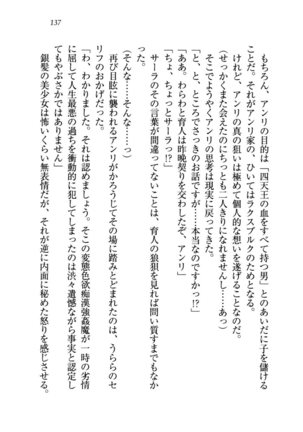 137
もちろん、アンリの目的は「四天王の血をすべて持つ男」とのあいだに子を儲ける
ことだ。それがアンリ家の、ひいてはラクスブルクのためとなる。
けれど、アンリの真の狙いは極めて個人的な想いを遂げることなのだ。
(せっかくまた会えたのにちっとも二人きりになれませんし……あっ)
そこでようやくアンリの思考は現実に戻ってきた。
「と、ところでさっきのお話ですが……本当なのですか」
「ああ。わらわと育人は昨晩契りを交わしたぞ、アンリ」
「ちょ、ちょっとサーラ!?」
サーラのその言葉が間違ってないことは、育人の狼狽を見れば問い質すまでもなか
った。
(そんな……そんなっ)
再び目眩に襲われるアンリがかろうじてその場に踏みとどまれたのは、うららのセ
リフのおかげだった。
「わ、わかりました。それは認めましょう。そこの変態色欲痴漢強姦魔が一時の劣情
に屈して人生最悪の過ちを衝動的に犯してしまったのは渋々遺憾ながら事実と認定し
てもやぶさかではありません」
銀髪の美少女は怖いくらい無表情だが、それが逆に内面に秘めた怒りを感じさせる。